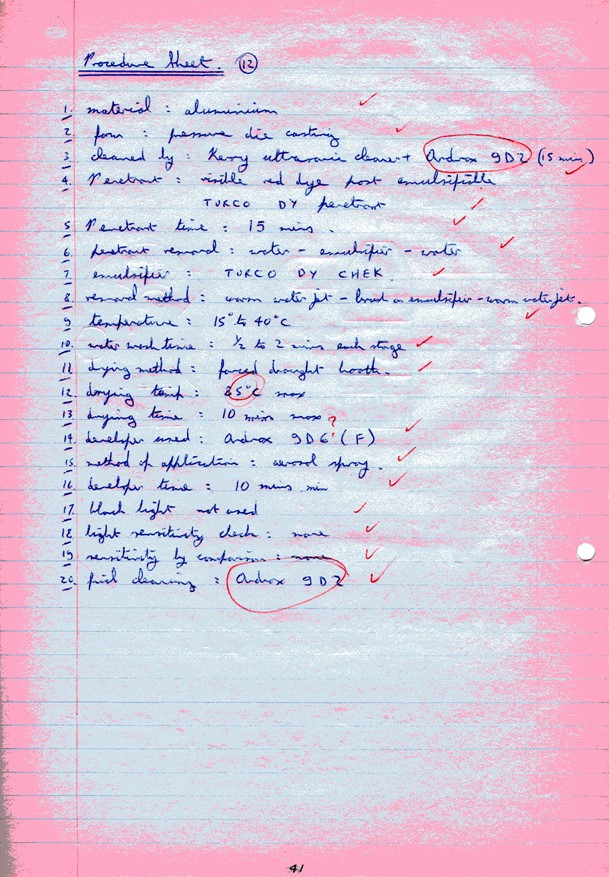 Procedure Sheet. 12
1. material : aluminium
2. form : pressure die casting
3. cleaned by : Kerry ultrasonic cleaner + Ardrox 9D2 (15 mins)
4. Penetrant : visible red dye post emulsifiable
TURCO DY penetrant
5. Penetrant time : 15 mins.
6. penetrant removal : water - emulsifier - water
7. emulsifier : TURCO DY CHEK
8. removal method : warm water jet - brush on emulsifier - warm water jet.
9. temperature : 15° to 40°C
10. water wash time : ½ to 2 mins each stage
11. drying method : forced draught booth.
12. drying temp : 85°C max
13. drying time : 10 mins max ?
14. developer used : Ardrox 9D6 (F)
15. method of application : aerosol spray.
16. developer time : 10 mins min
17. black light not used
18. light sensitivity check : none
19. sensitivity by comparison : none
20. final cleaning : Ardrox 9D2
41